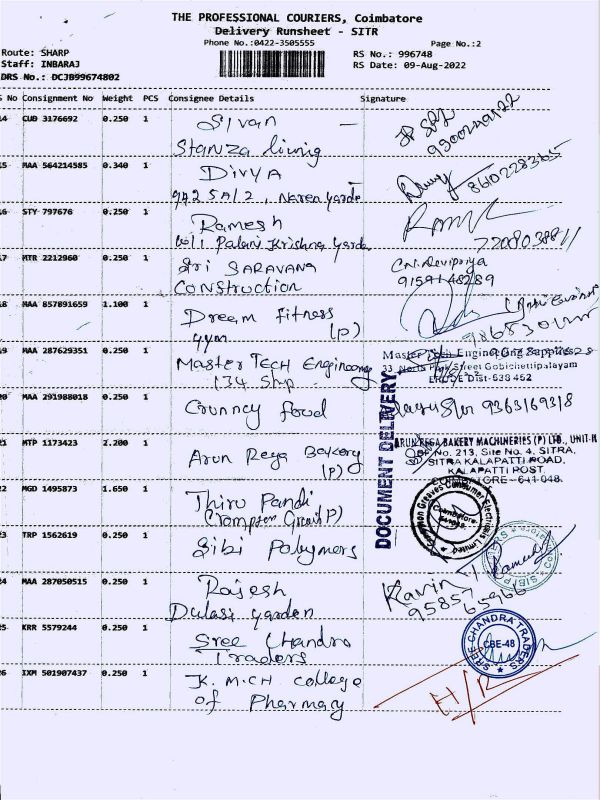 THE PROFESSIONAL COURIERS, Coimbatore
Delivery Runsheet - SITR
Phone No.:0422-3505555
Page No.:2
Route: SHARP
Staff: INBARAJ
DRS No.: DCJB99674802
RS No.: 996748
RS Date: 09-Aug-2022
S No Consignment No Weight PCS Consignee Details Signature
14 CUD 3176692 0.250 1 Sivan
Stanza living
15 MAA 564214585 0.340 1 Divya 8610228365
942 5A/2, Naren garde
16 STY 797676 0.250 1 Ramesh
Palani Krishna garde
17 MTR 2212960 0.250 1 Sri SARAVANA C.N. Devipriya
Construction 9159148289
18 MAA 857891659 1.100 1 Dream fitness
gym (P)
19 MAA 287629351 0.250 1 Master TECH Engineering Master Tech Engineering Supplies
134 Shp. 33, North Street Gobichettipalayam
ERODE Dist-638 452
20 MAA 291988018 0.250 1 Crunncy food 9363169318
DOCUMENT DELIVERY
21 MTP 1173423 2.200 1 Arun Rega Bakery (P) ARUN REGA BAKERY MACHINERIES (P) LTD., UNIT-II
No. 213, Site No. 4, SITRA,
SITRA KALAPATTI ROAD,
KALAPATTI POST,
COIMBATORE-641 048.
22 MGD 1495873 1.650 1 Thiru Pandi
(Crompton Greav(P) Crompton Greaves Consumer Electricals Limited
Coimbatore
23 TRP 1562619 0.250 1 Sibi Polymers
24 MAA 287050515 0.250 1 Rajesh Kavin
Dulasi garden 95857 65966
25 KRR 5579244 0.250 1 Sree Chandra
Traders SREE CHANDRA TRADERS
CBE-48
26 IXM 501907437 0.250 1 K.MCH College
of Pharmacy